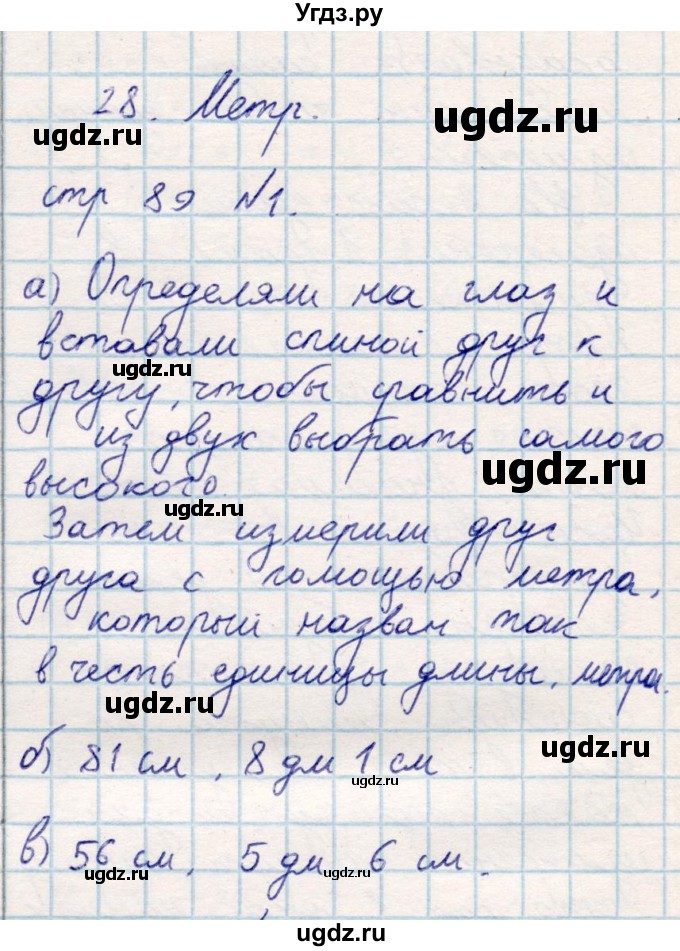 Угдз.ру
28. Метр.
ugdz.ru
ugdz.ru
стр 89 №1.
а) Определяли на глаз и
вставали спиной друг к
ugdz.ru
другу, чтобы сравнить и
из двух выбрать самого
ugdz.ru
высокого.
ugdz.ru
Затем измерили друг
друга с помощью метра,
который назван так
в честь единицы длины. метра.
ugdz.ru
ugdz.ru
б) 81 см, 8 дм 1 см
ugdz.ru
в) 56 см, 5 дм 6 см.
ugdz.ru
ugdz.ru
ugdz.ru